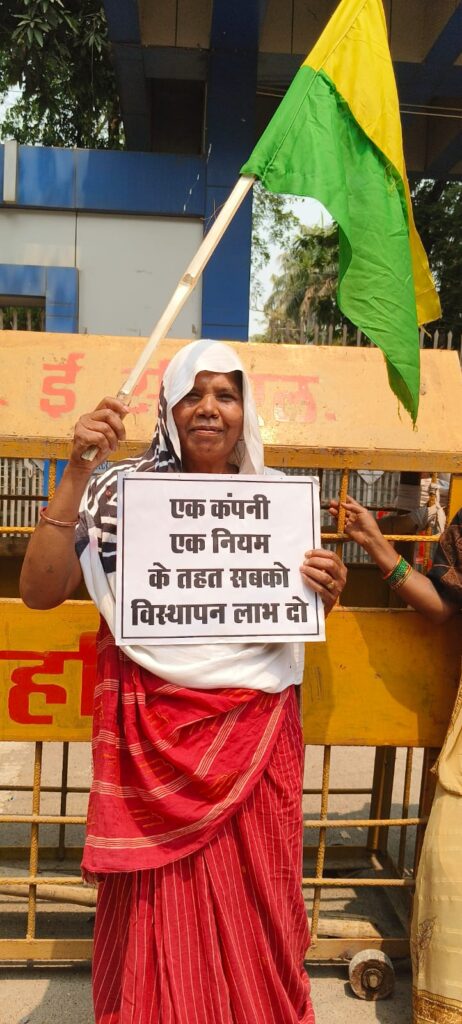 ई
ल.
एक कंपनी
एक नियम
के तहत सबको
विस्थापन लाभ दो
ही